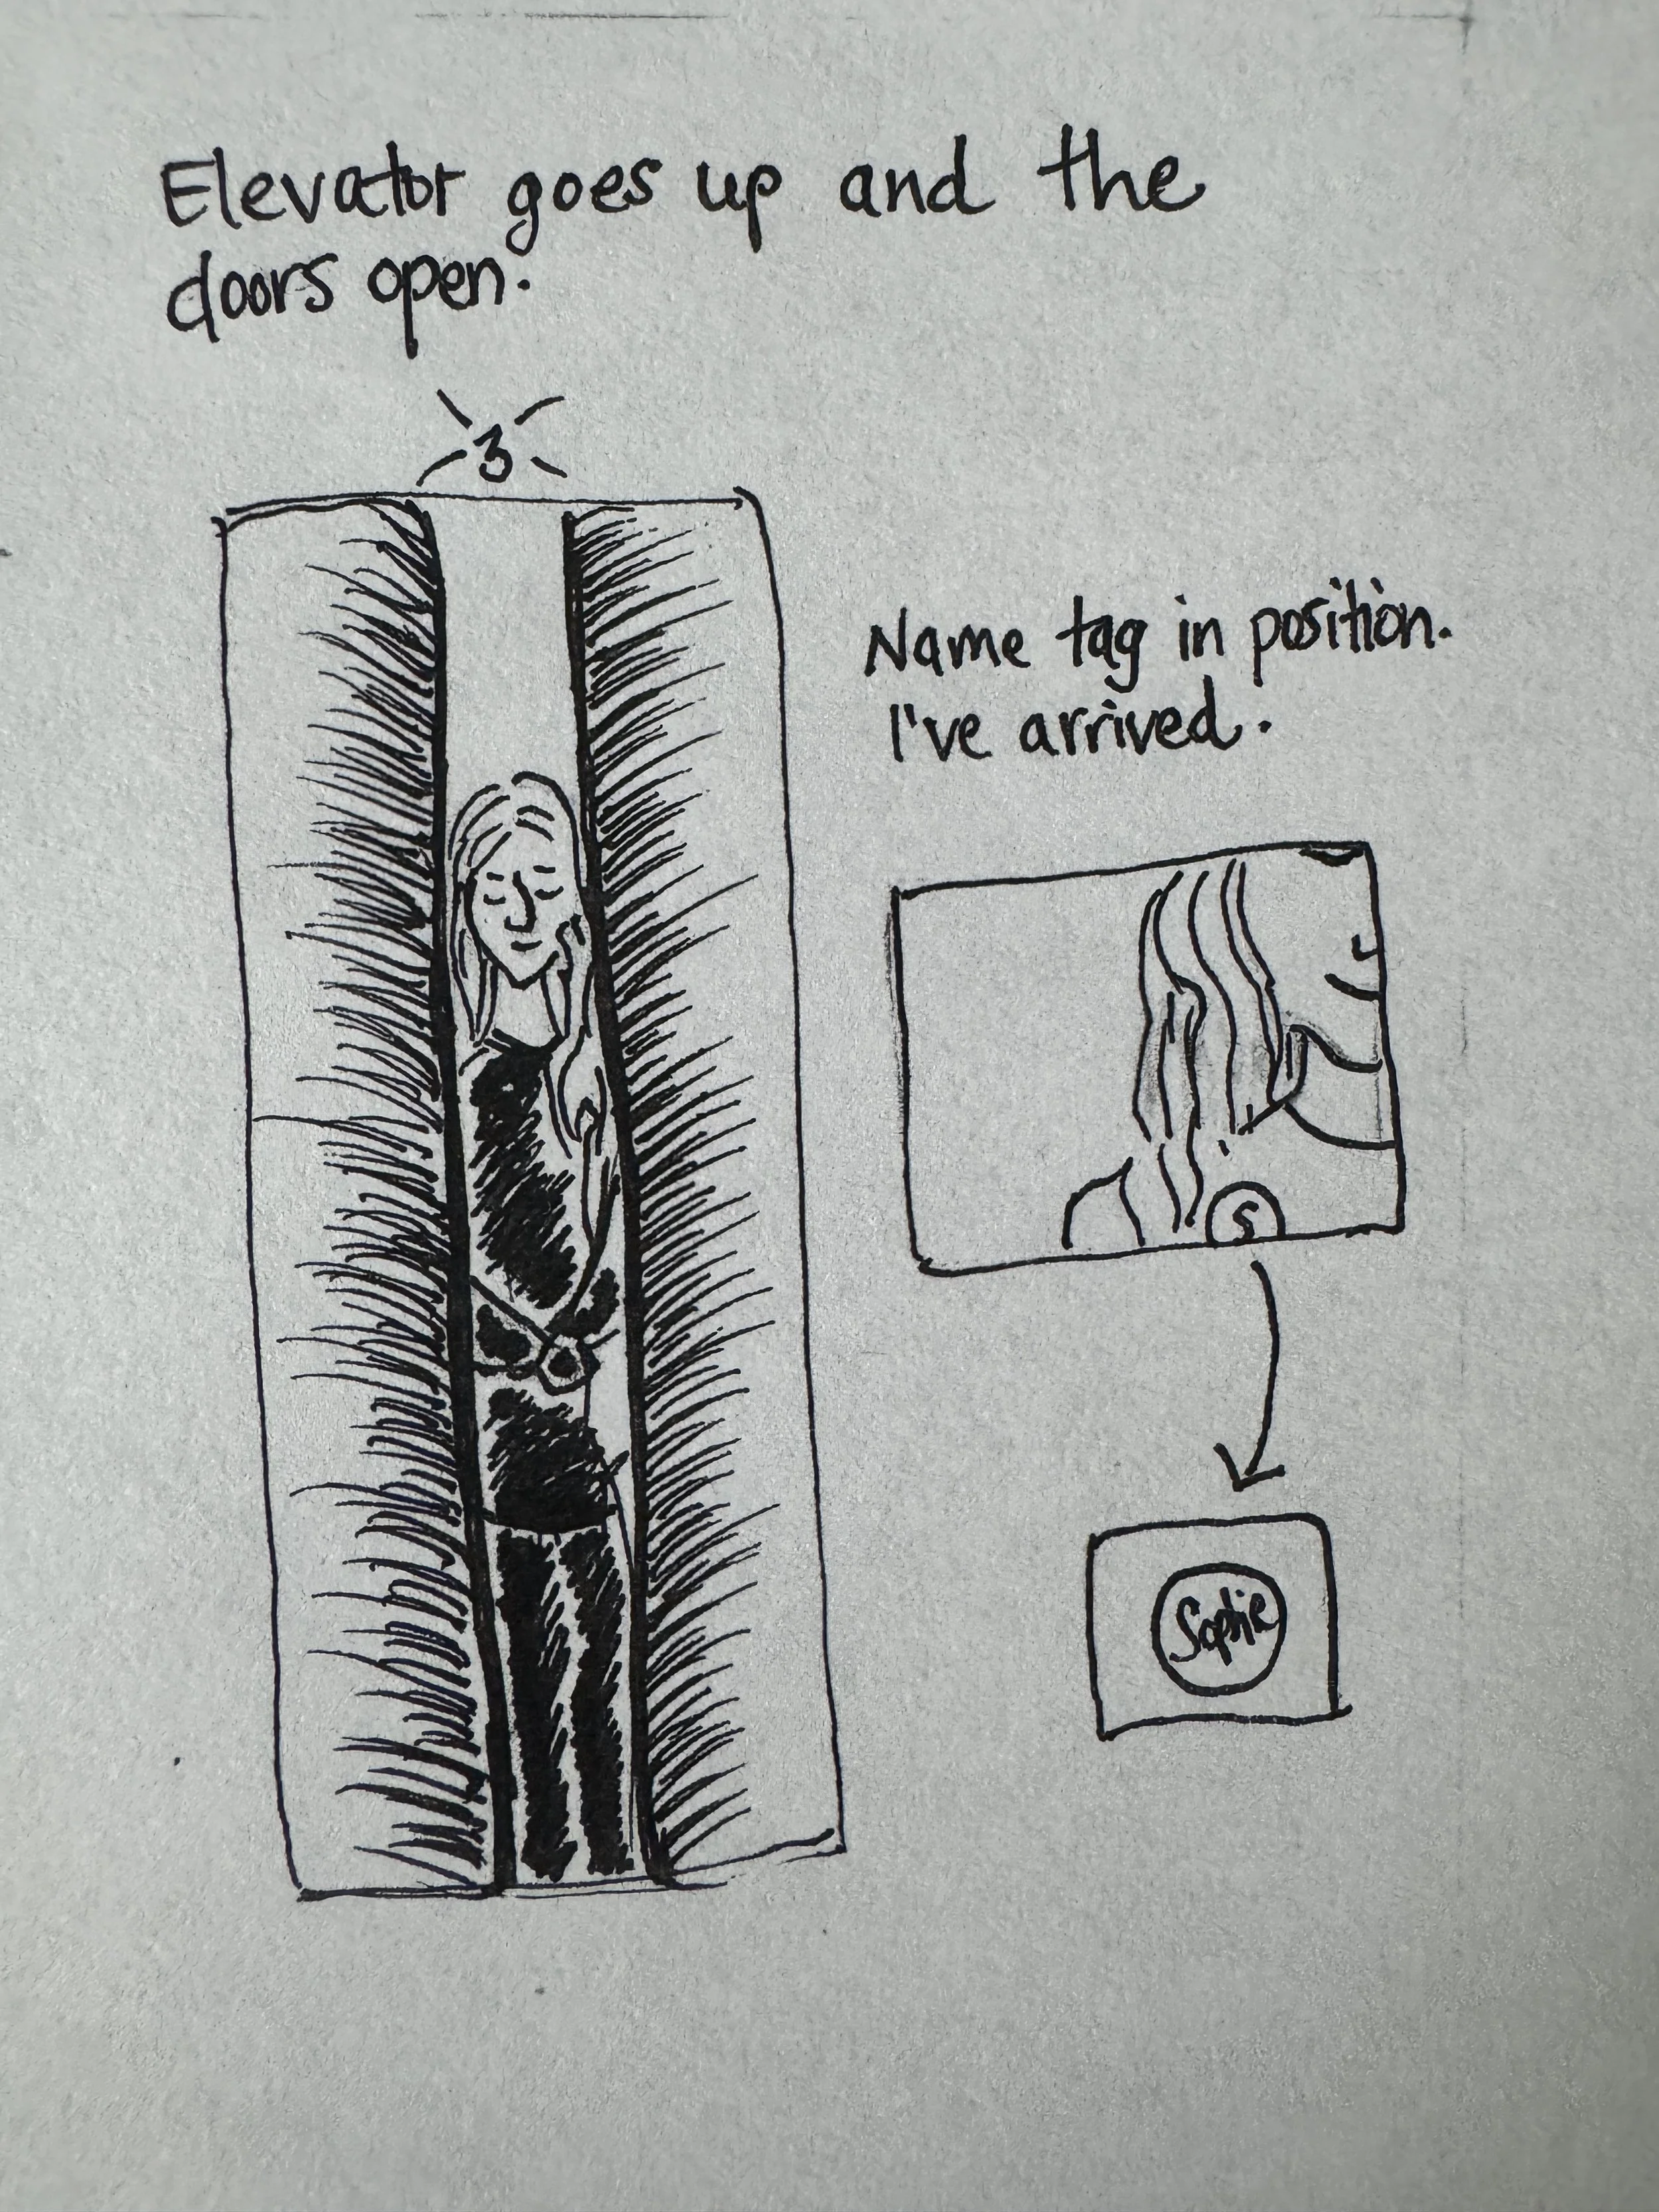 Elevator goes up and the
doors open.
3
Name tag in position.
I've arrived.
S
Sophie